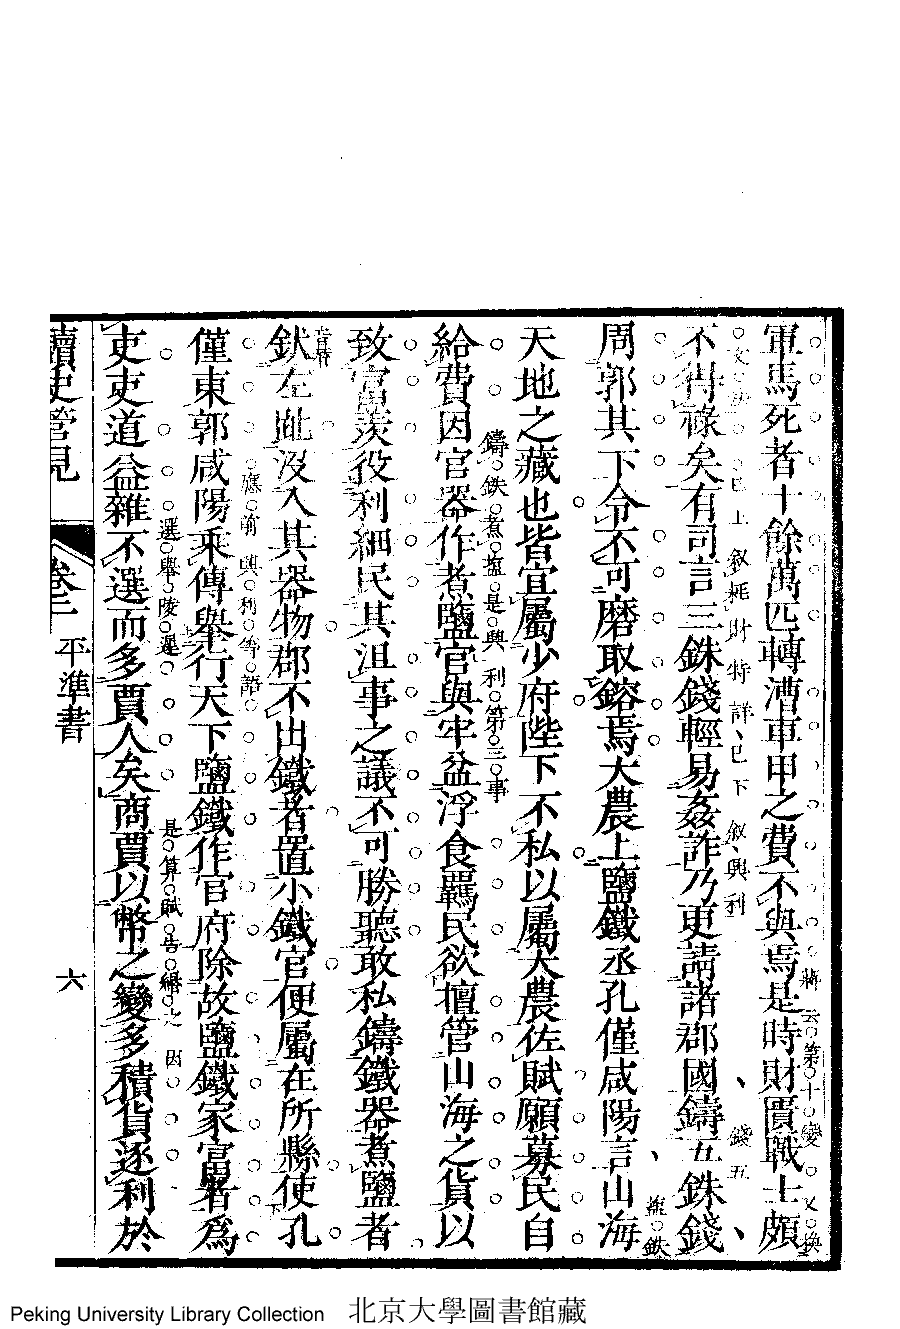 軍馬死者十餘萬匹轉漕車甲之費不與焉是時財匱職士頗
蔣云第十變又換
不得祿矣有司言三銖錢輕易姦詐乃更請諸郡國鑄五銖錢
已上敘耗財特詳已下敘興利
錢五
周郭其下令不可磨取鎔焉大農上鹽鐵丞孔僅咸陽言山海
天地之藏也皆宜屬少府陛下不私以屬大農佐賦願募民自
鑄鉄煮塩是興利第三事
給費因官器作煮鹽官與牢盆浮食羈民欲擅管山海之貨以
致富羨役利細民其沮事之議不可勝聽敢私鑄鐵器煮鹽者
釱左趾沒入其器物郡不出鐵者置小鐵官便屬在所縣使孔
應前興利等語
僅東郭咸陽乘傳舉行天下鹽鐵作官府除故鹽鐵家富者爲
選舉陵遲
是算賦告緡之因
吏吏道益雜不選而多賈人矣商賈以幣之變多積貨逐利於
讀史管見
卷三
平準書
六
Peking University Library Collection 北京大學圖書館藏